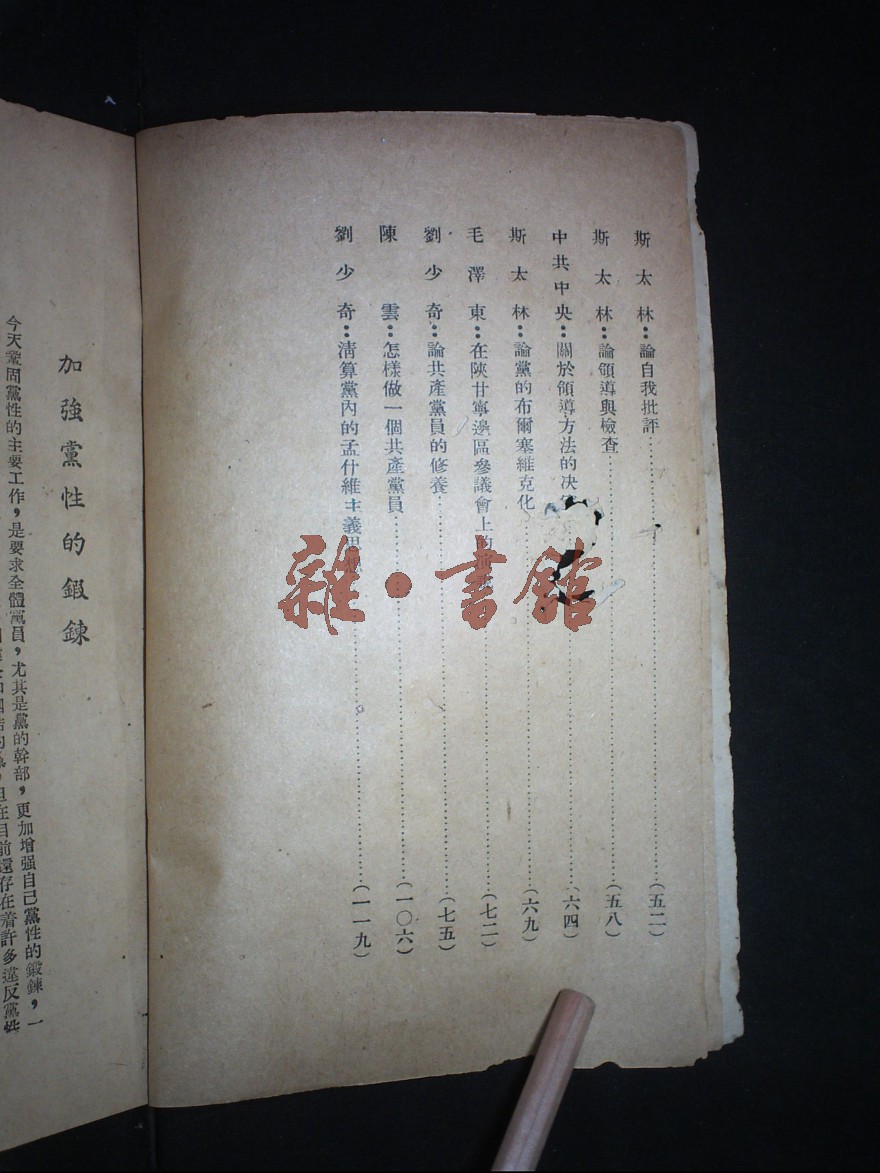 斯太林：論自我批評……(五二)
斯太林：論領導與檢查……(五八)
中共中央：關於領導方法的決……(六四)
斯太林：論黨的布爾塞維克化……(六九)
毛澤東：在陝甘寧邊區參議會上的……(七二)
劉少奇：論共產黨員的修養……(七五)
陳雲：怎樣做一個共產黨員……(一〇六)
劉少奇：清算黨內的孟什維主義思……(一一九)
雜·書館
加強黨性的鍛鍊
今天鞏固黨性的主要工作，是要求全體黨員，尤其是黨的幹部，更加增强自己黨性的鍛鍊，一
但在目前還存在着許多違反黨性